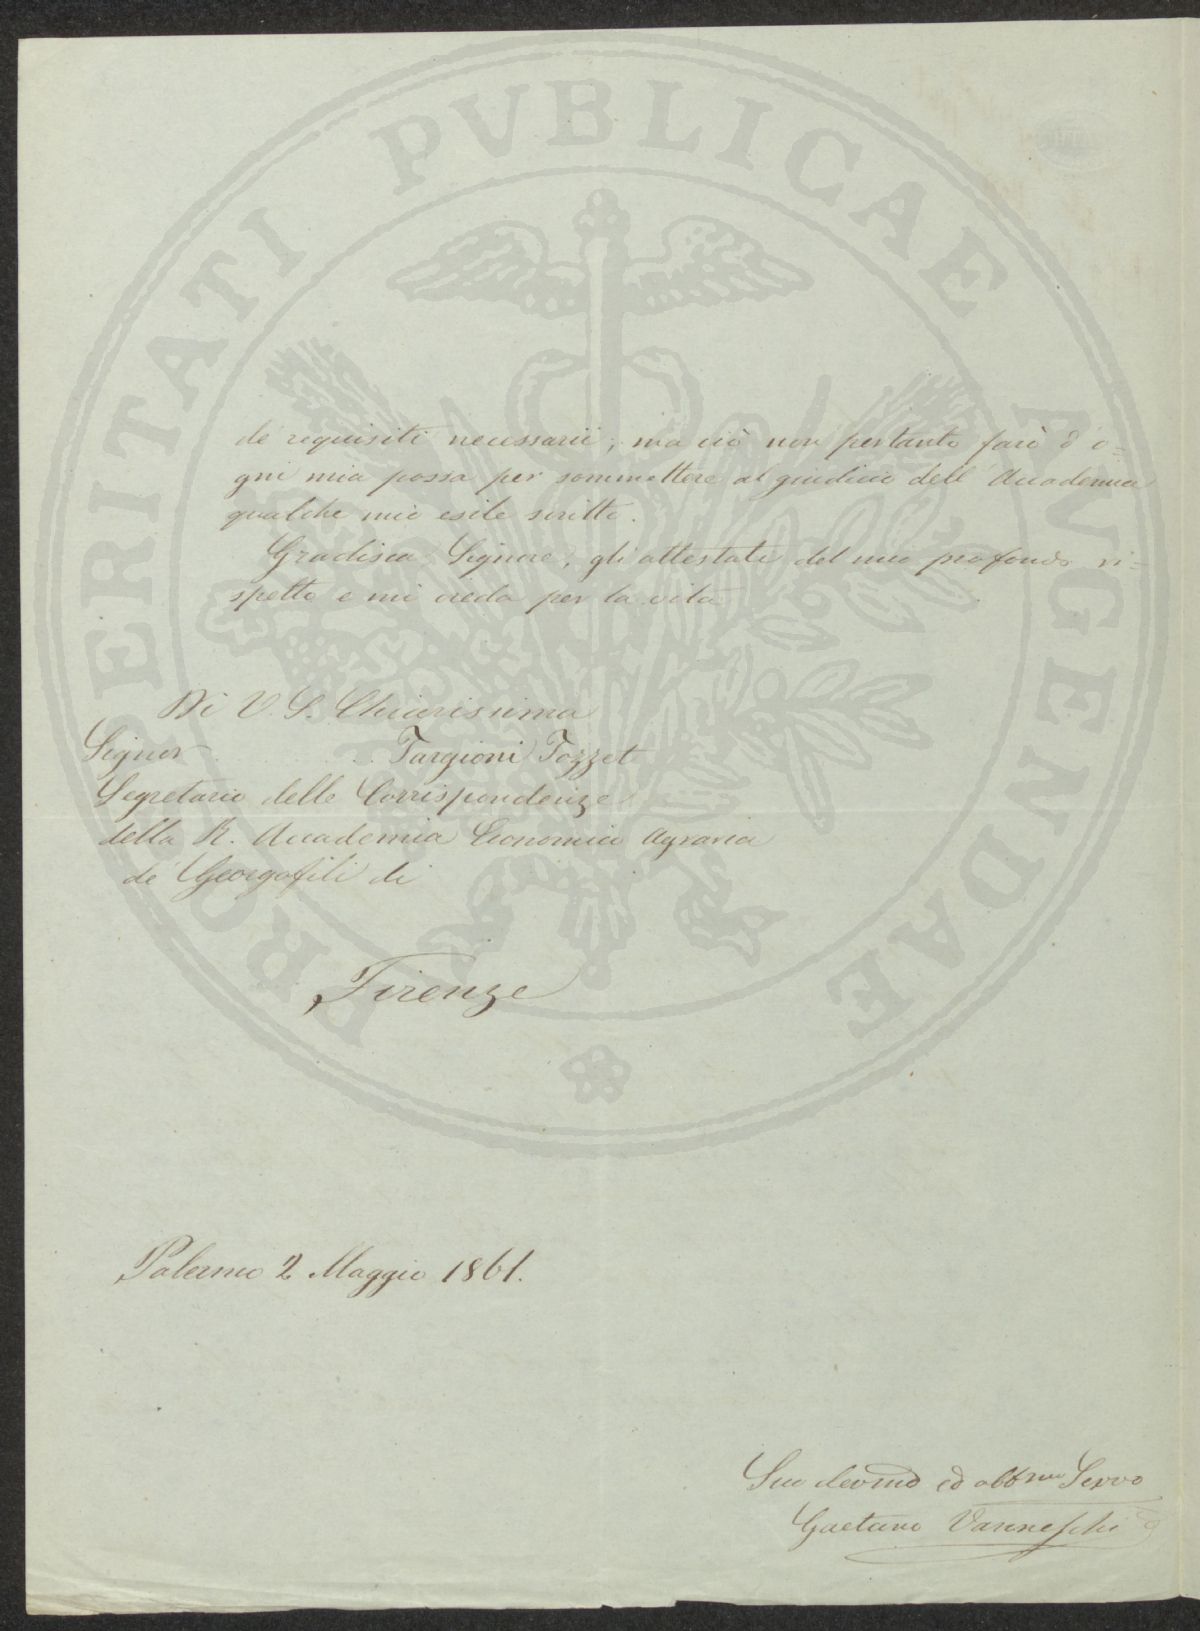 PROSPERITATI PVBLICAE AVGENDAE
de' requisiti necessarii; ma ciò non pertanto farò d'o=
gni mia possa per sommettere al giudicio dell'Accademia
qualche mio esile scritto.
Gradisca Signore, gli attestati del mio profondo ri=
spetto e mi creda per la vita
Di V. S. Chiarissima
Signor . . . . Targioni Tozzet
Segretario delle Corrispondenze
della R. Accademia Economico Agraria
de' Georgofili di
Firenze
Palermo 2 Maggio 1861.
Suo devmo ed obbmo Servo
Gaetano Vanneschi